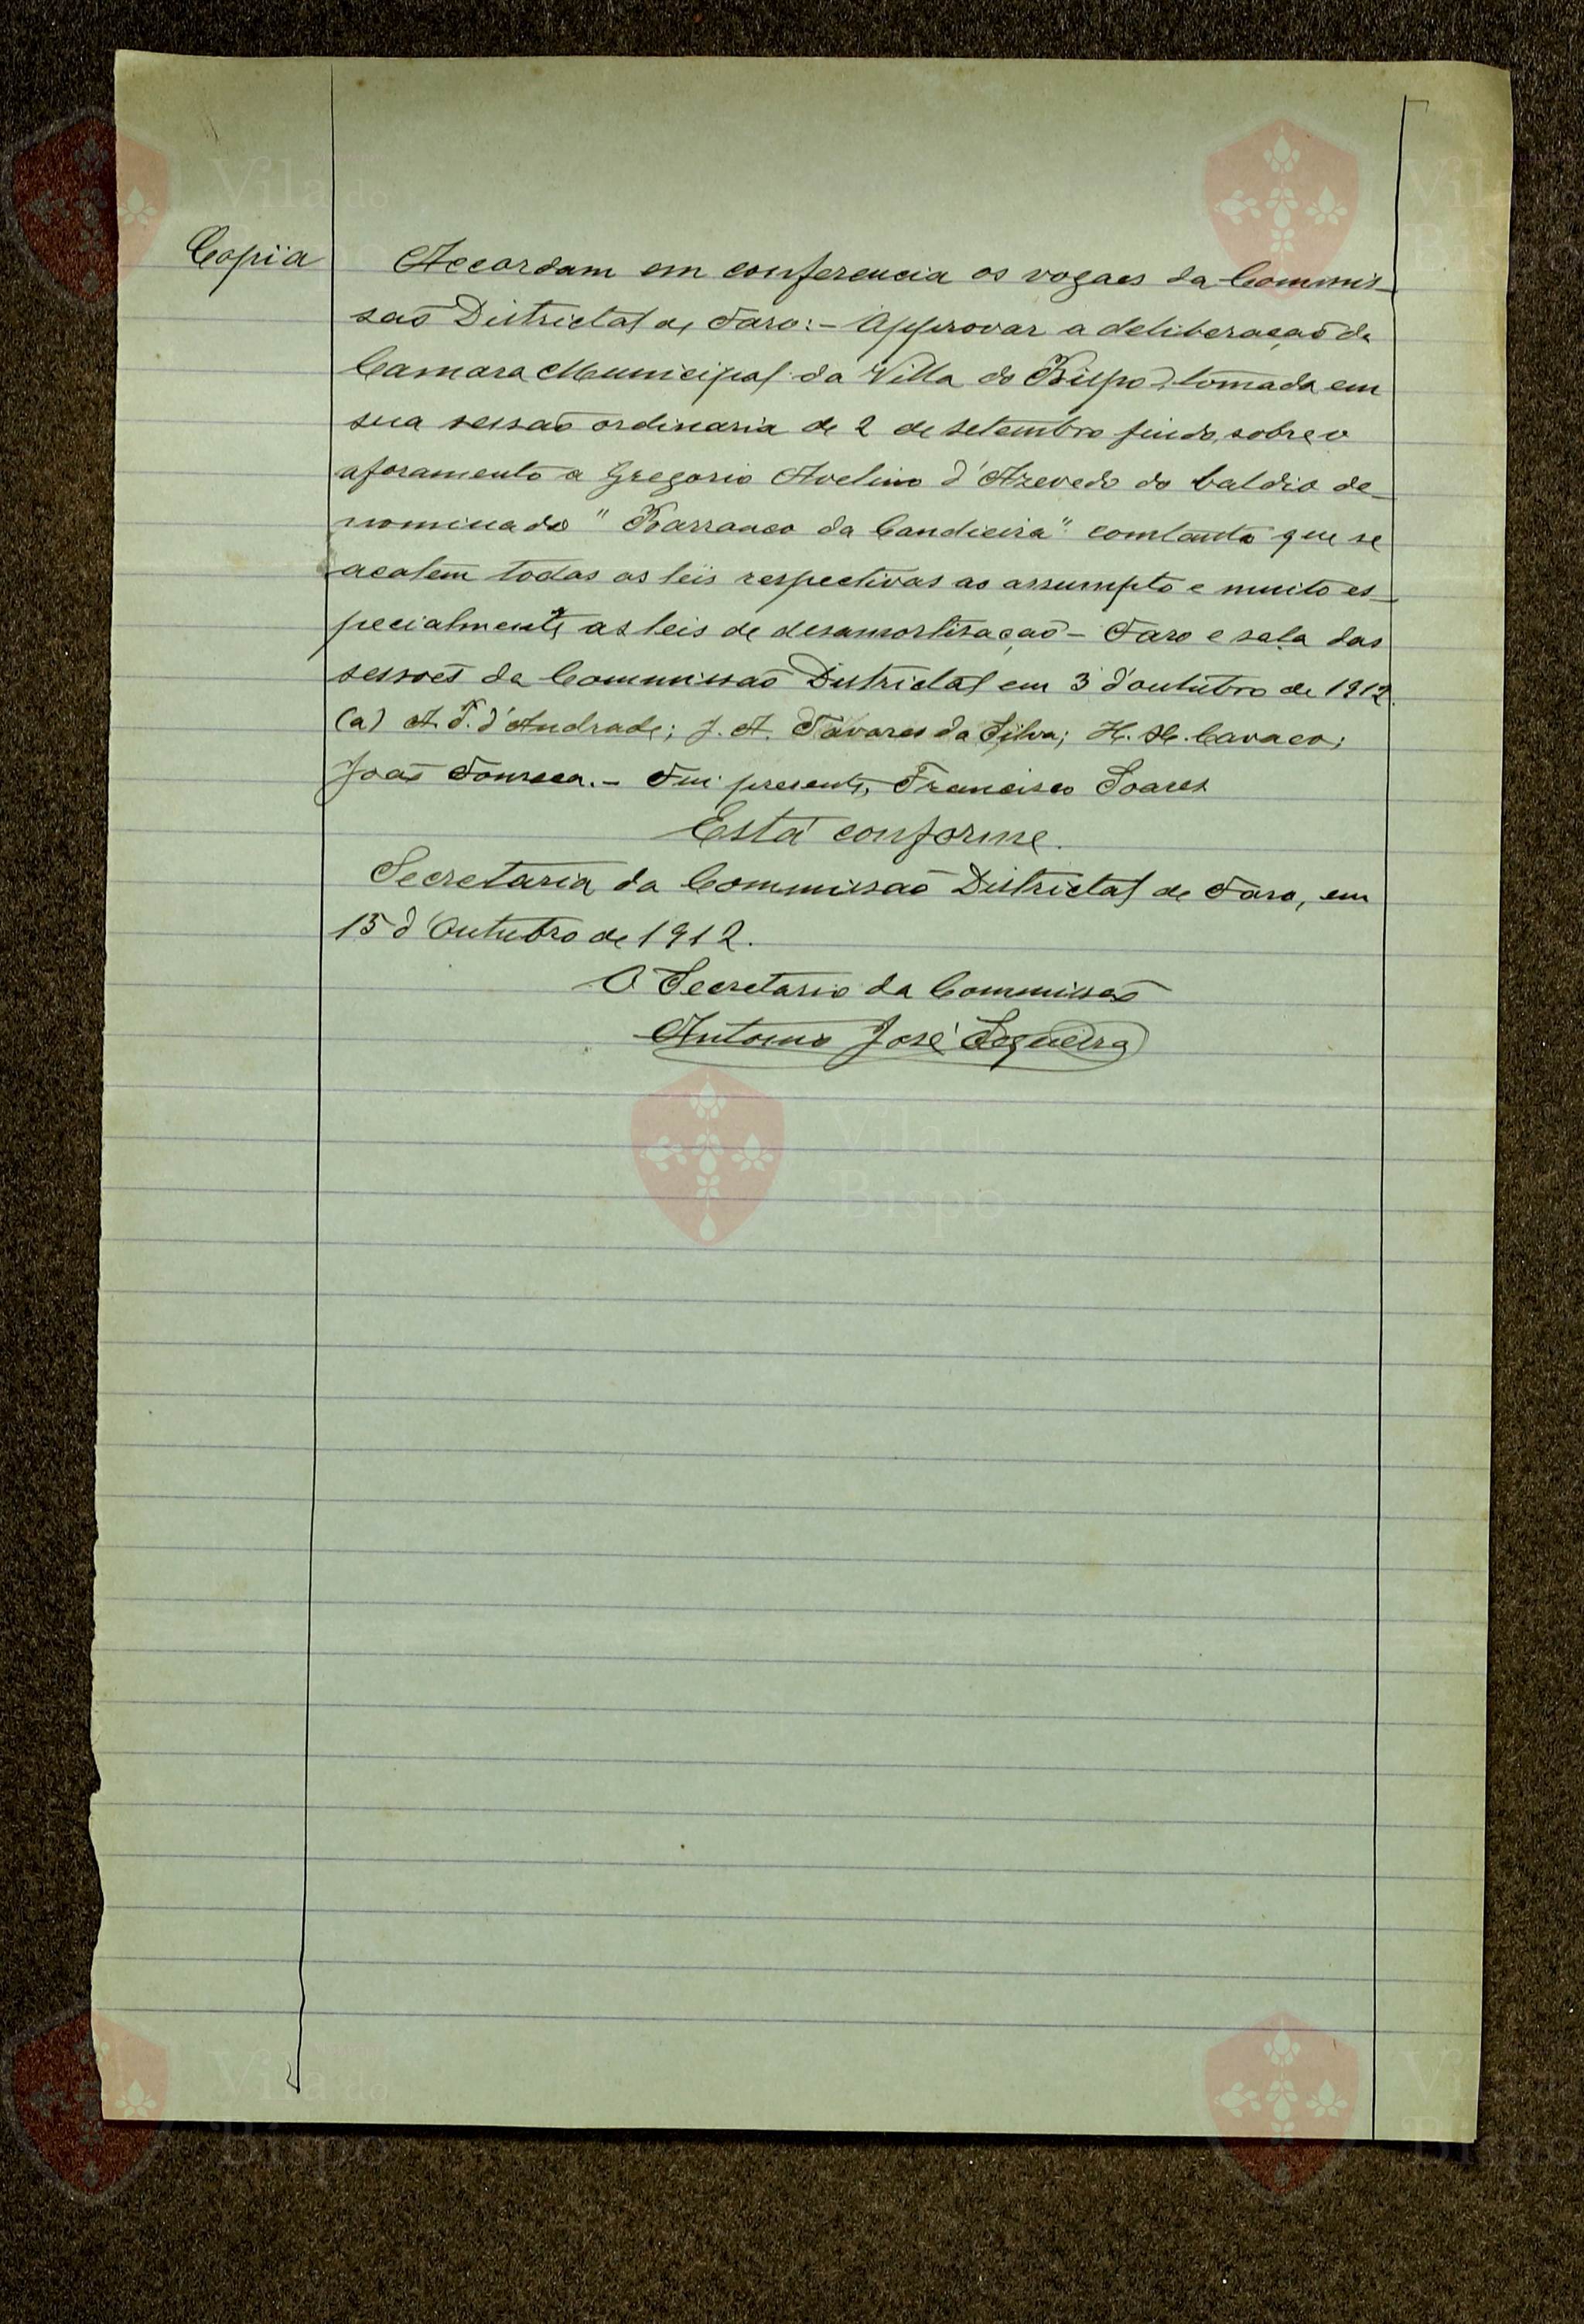 Copia
Accordam em conferencia os vogaes da Commis-
são Districtal de Faro:- Approvar a deliberação da
Camara Municipal da Villa do Bispo, tomada em
sua sessão ordinaria de 2 de setembro findo, sobre o
aforamento a Gregorio Avelino d'Azevedo do baldio de-
nominado "Barranco da Candieira" comtanto que se
acatem todas as leis respectivas ao assumpto e muito es-
pecialmente as leis de desamortisação - Faro e sala das
sessões da Commissão Districtal em 3 d'outubro de 1912.
(a) A. F. d'Andrade; J. A. Tavares da Silva; H. Cavaco;
João Fonseca.- Fui presente, Francisco Soares
Está conforme.
Secretaria da Commissão Districtal de Faro, em
15 d'Outubro de 1912.
O Secretario da Commissão
Antonio José
Vila do
Bispo